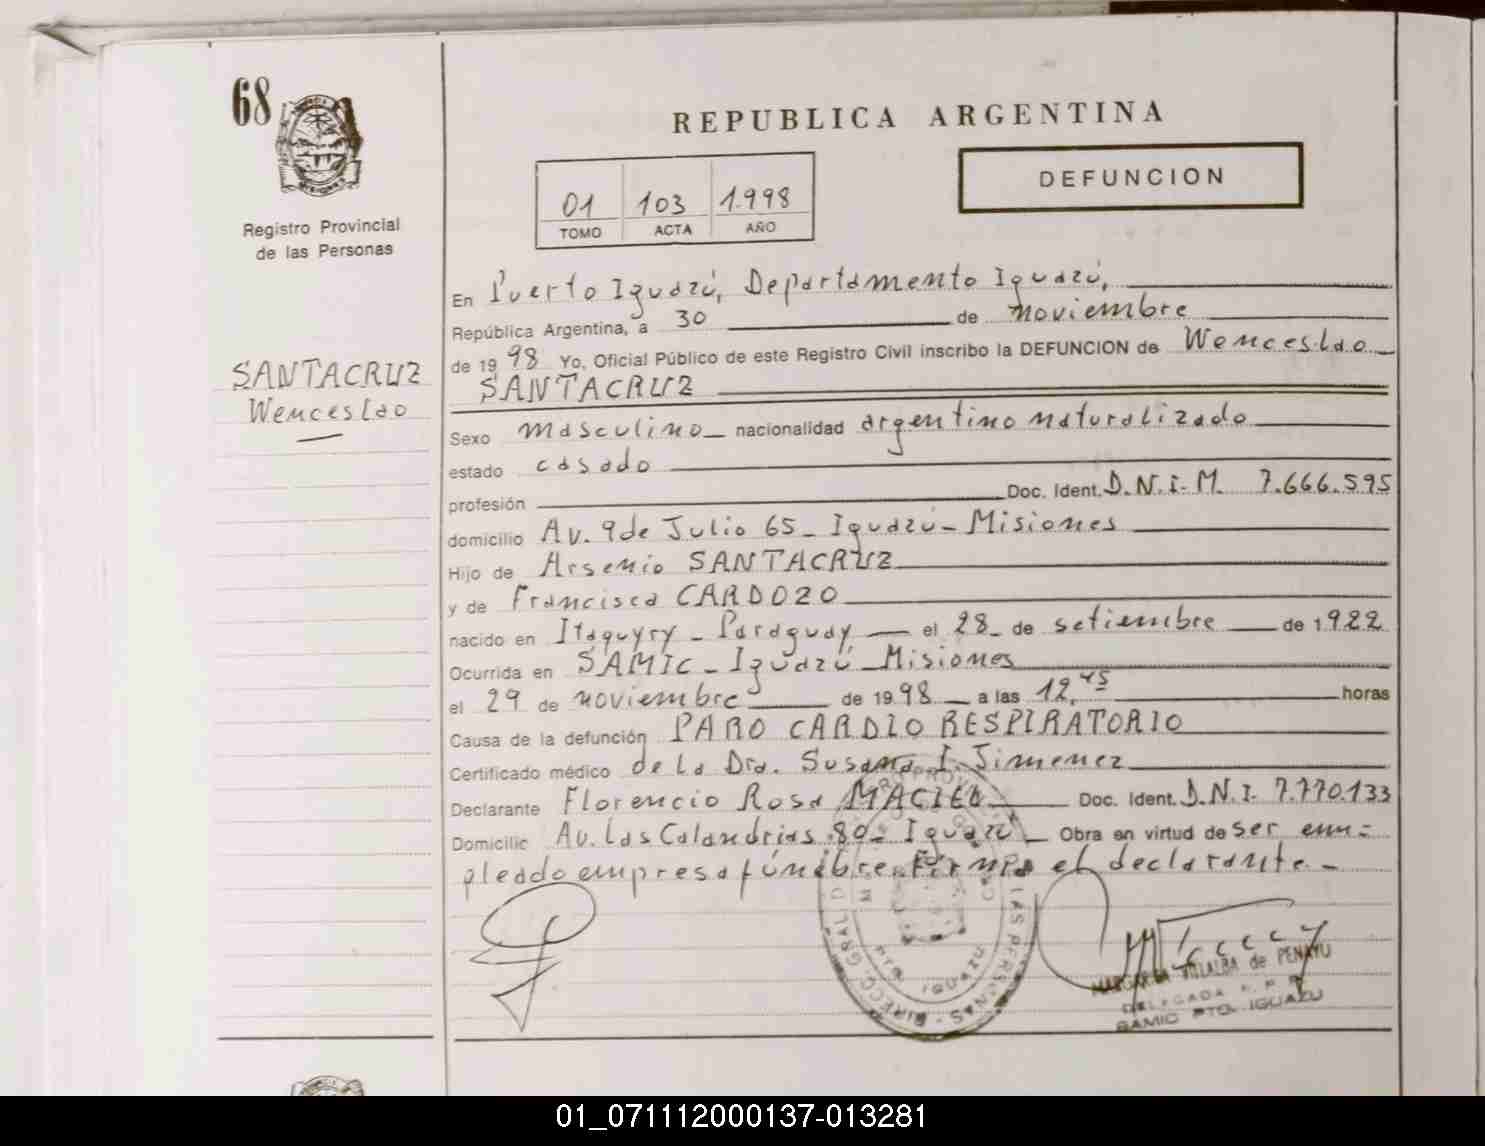 68
REPUBLICA ARGENTINA
DEFUNCION
01 103 1.998
TOMO ACTA AÑO
Registro Provincial
de las Personas
SANTACRUZ
Wenceslao
En Puerto Iguazú, Departamento Iguazú,
República Argentina, a 30 de noviembre
de 1998 Yo, Oficial Público de este Registro Civil inscribo la DEFUNCION de Wenceslao
SANTACRUZ
Sexo masculino nacionalidad argentino naturalizado
estado casado
profesión Doc. Ident. D.N.I.M. 7.666.595
domicilio Av. 9 de Julio 65 - Iguazú - Misiones
Hijo de Arsenio SANTACRUZ
y de Francisca CARDOZO
nacido en Itaquyry - Paraguay el 28 de setiembre de 1922
Ocurrida en SAMIC - Iguazú Misiones
el 29 de noviembre de 1998 a las 12,45 horas
Causa de la defunción PARO CARDIO RESPIRATORIO
Certificado médico de la Dra. Susana I. Jimenez
Declarante Florencio Rosa MACIEL Doc. Ident. D.N.I. 7.770.133
Domicilio Av. Las Calandrias 80 - Iguazú Obra en virtud de ser em=
pleado empresa fúnebre. Firma el declarante.-
DIRECC. GRAL. D LAS PERSONAS
PTO IGUAZU
MARGARITA VILLALBA de PENAYU
DELEGADA
SAMIC PTO. IGUAZU
MISIONES
01_071112000137-013281